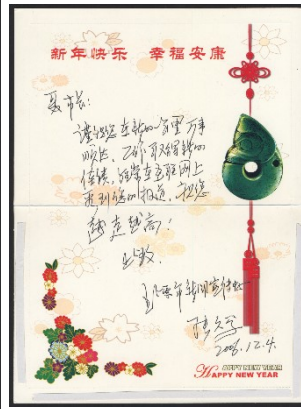 新年快乐 幸福安康
聂市长:
谨祝您在新的一年里万事
顺达，工作取得新的
佳绩。经常在互联网上
看到您的报道，祝您
越走越高！
此致
2006.12.4.
HAPPY NEW YEAR
HAPPY NEW YEAR